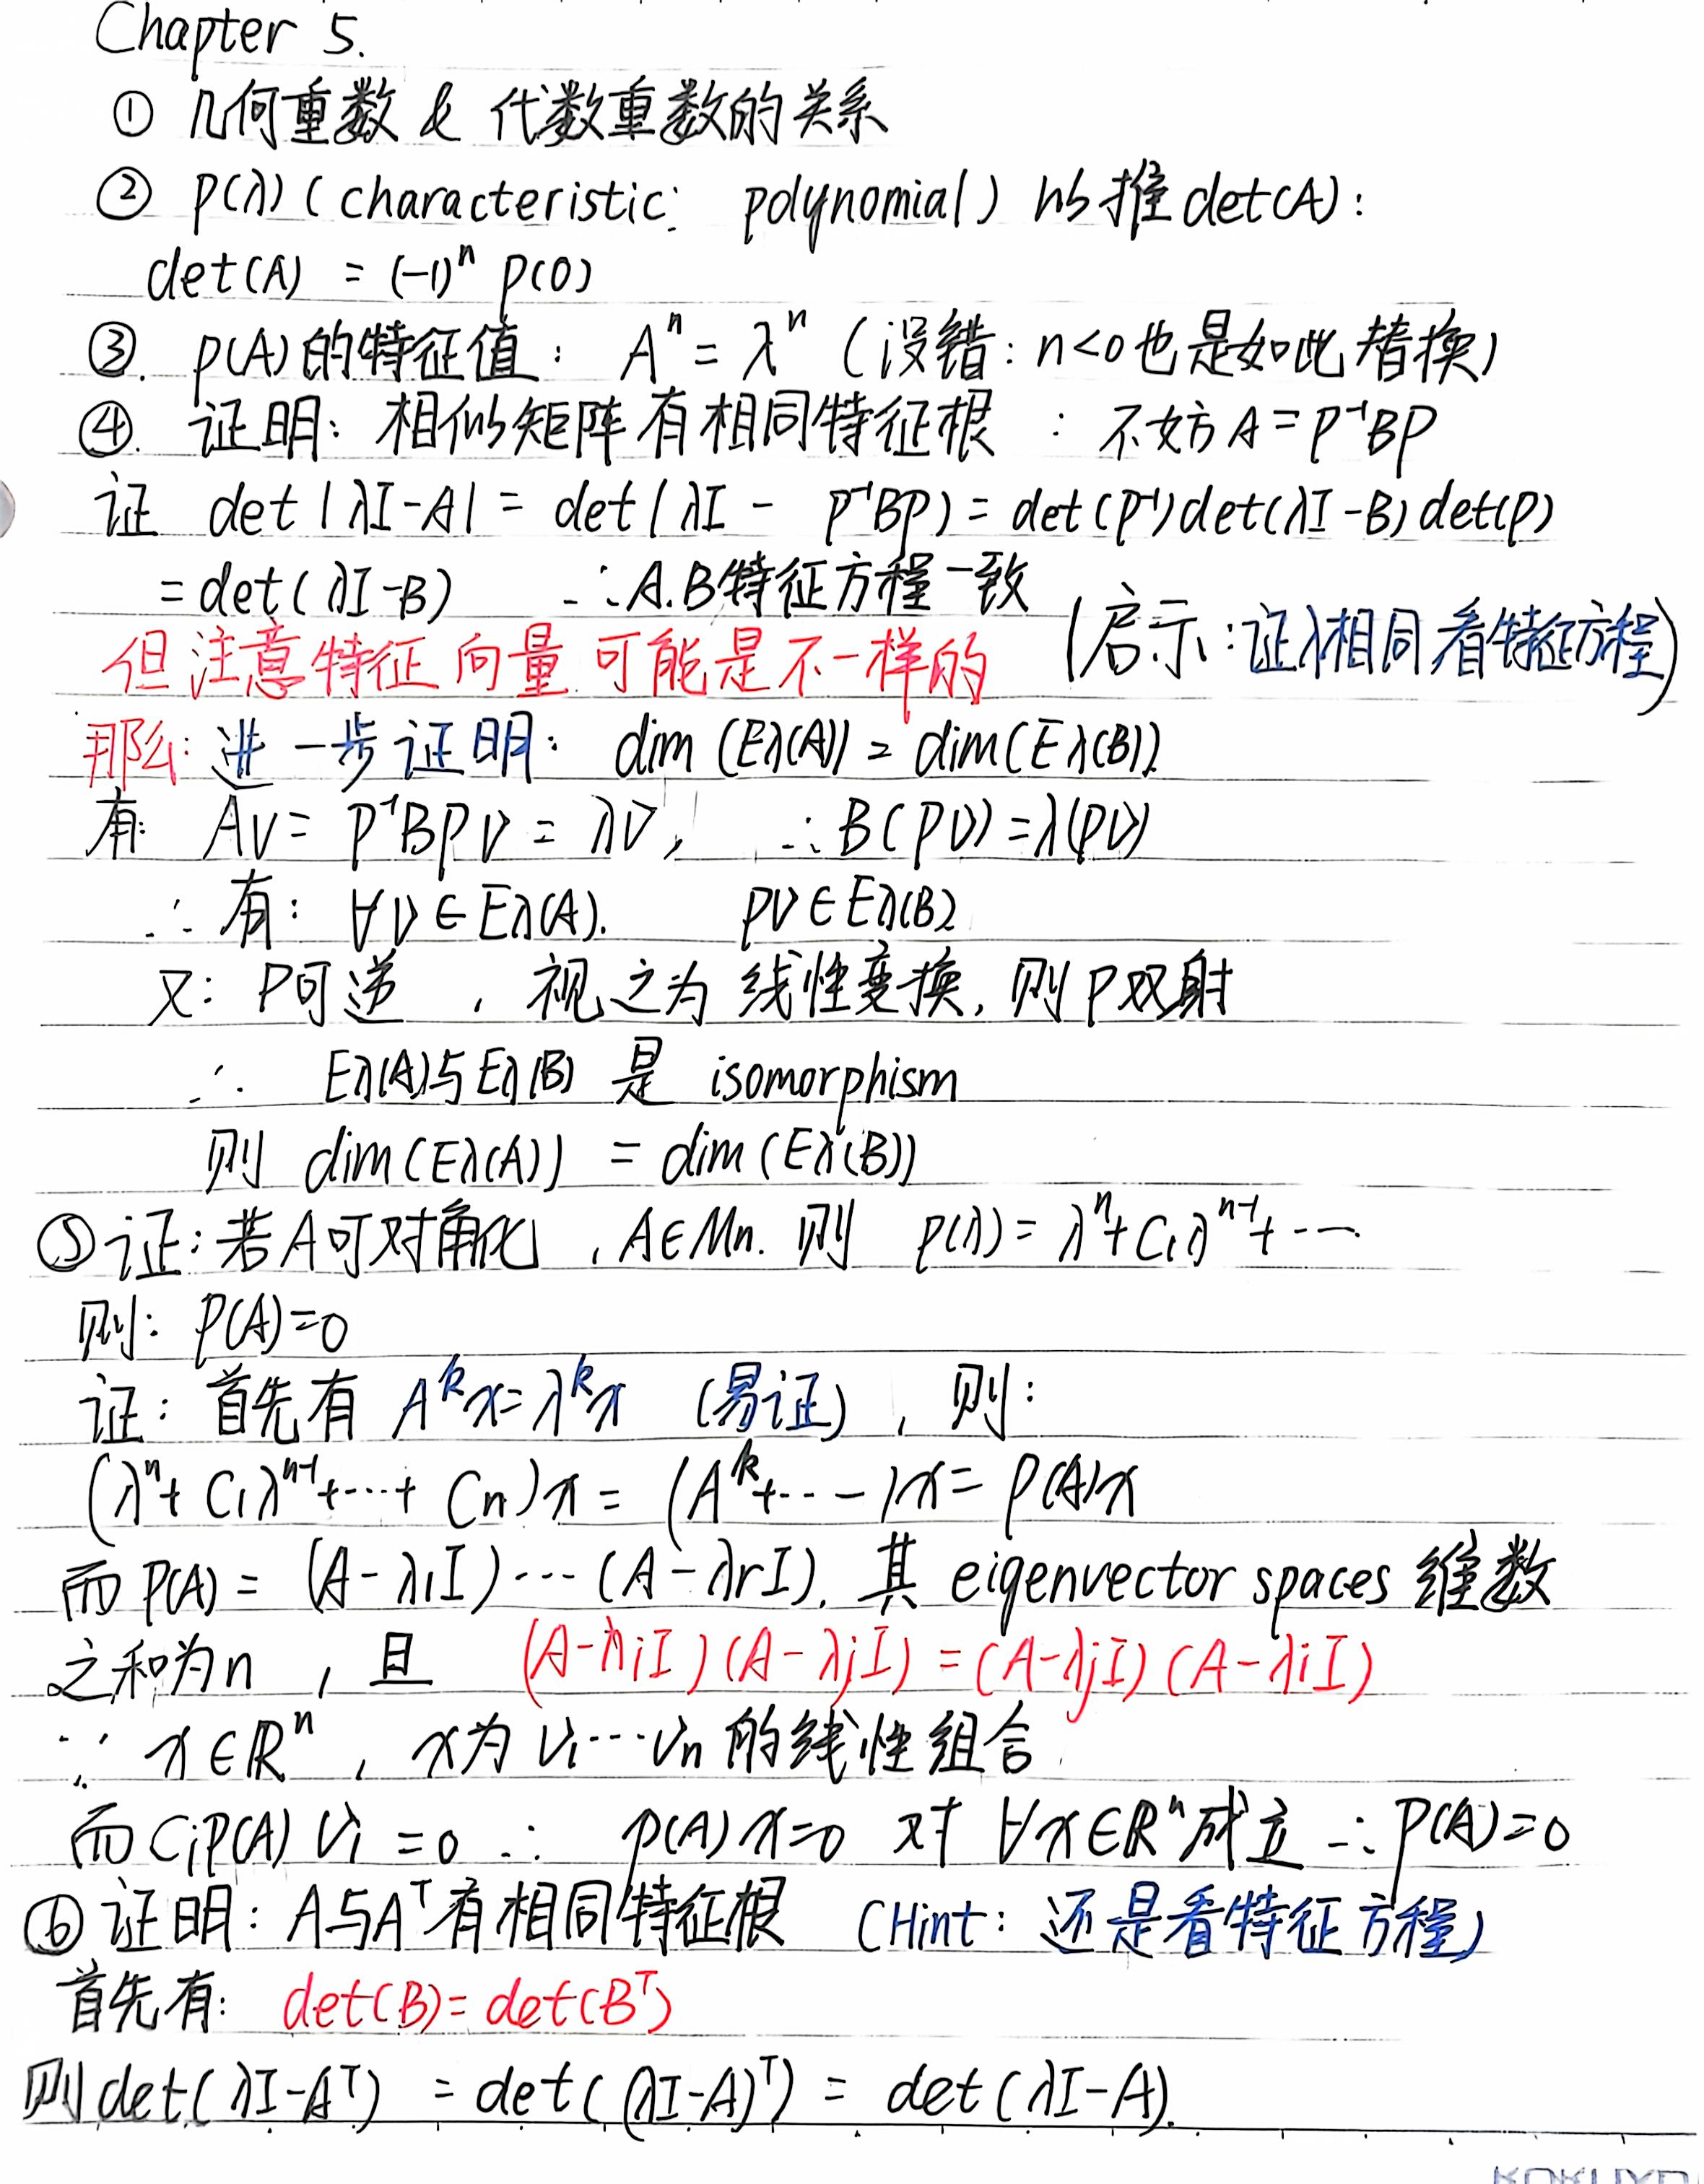 Chapter 5.
① 几何重数 & 代数重数的关系
② p(λ) (characteristic: polynomial) 倒推 det(A):
det(A) = (-1)ⁿ p(0)
③. p(A)的特征值: Aⁿ = λⁿ (没错: n<0也是如此替换)
④. 证明: 相似矩阵有相同特征根 : 不妨 A = P⁻¹BP
证 det|λI-A| = det(λI - P⁻¹BP) = det(P⁻¹)det(λI-B)det(P)
= det(λI-B) ∴A.B特征方程一致
但注意特征向量可能是不一样的 (启示:证λ相同看特征方程)
那么: 进一步证明: dim (Eλ(A)) = dim(Eλ(B))
有: Av = P⁻¹BPv = λv, ∴B(Pv) = λ(Pv)
∴有: ∀v∈Eλ(A). Pv∈Eλ(B)
又: P可逆 , 视之为线性变换, 则P双射
∴ Eλ(A)与Eλ(B) 是 isomorphism
则 dim(Eλ(A)) = dim(Eλ(B))
⑤证: 若A可对角化 , A∈Mn. 则 p(λ) = λⁿ+C₁λⁿ⁻¹+---
则: P(A)=0
证: 首先有 Aᵏx=λᵏx (易证) , 则:
(λⁿ+C₁λⁿ⁻¹+···+Cn)x = (Aᵏ+---)x = P(A)x
而P(A) = (A-λ₁I)···(A-λrI), 其 eigenvector spaces 维数
之和为n , 且 (A-λiI)(A-λjI) = (A-λjI)(A-λiI)
∵ x∈Rⁿ , x为v₁···vn的线性组合
而CiP(A)vi = 0 ∴ p(A)x=0 对 ∀x∈Rⁿ成立 ∴P(A)=0
⑥证明: A与Aᵀ有相同特征根 (Hint: 还是看特征方程)
首先有: det(B) = det(Bᵀ)
则det(λI-Aᵀ) = det((λI-A)ᵀ) = det(λI-A).
KOKUYO